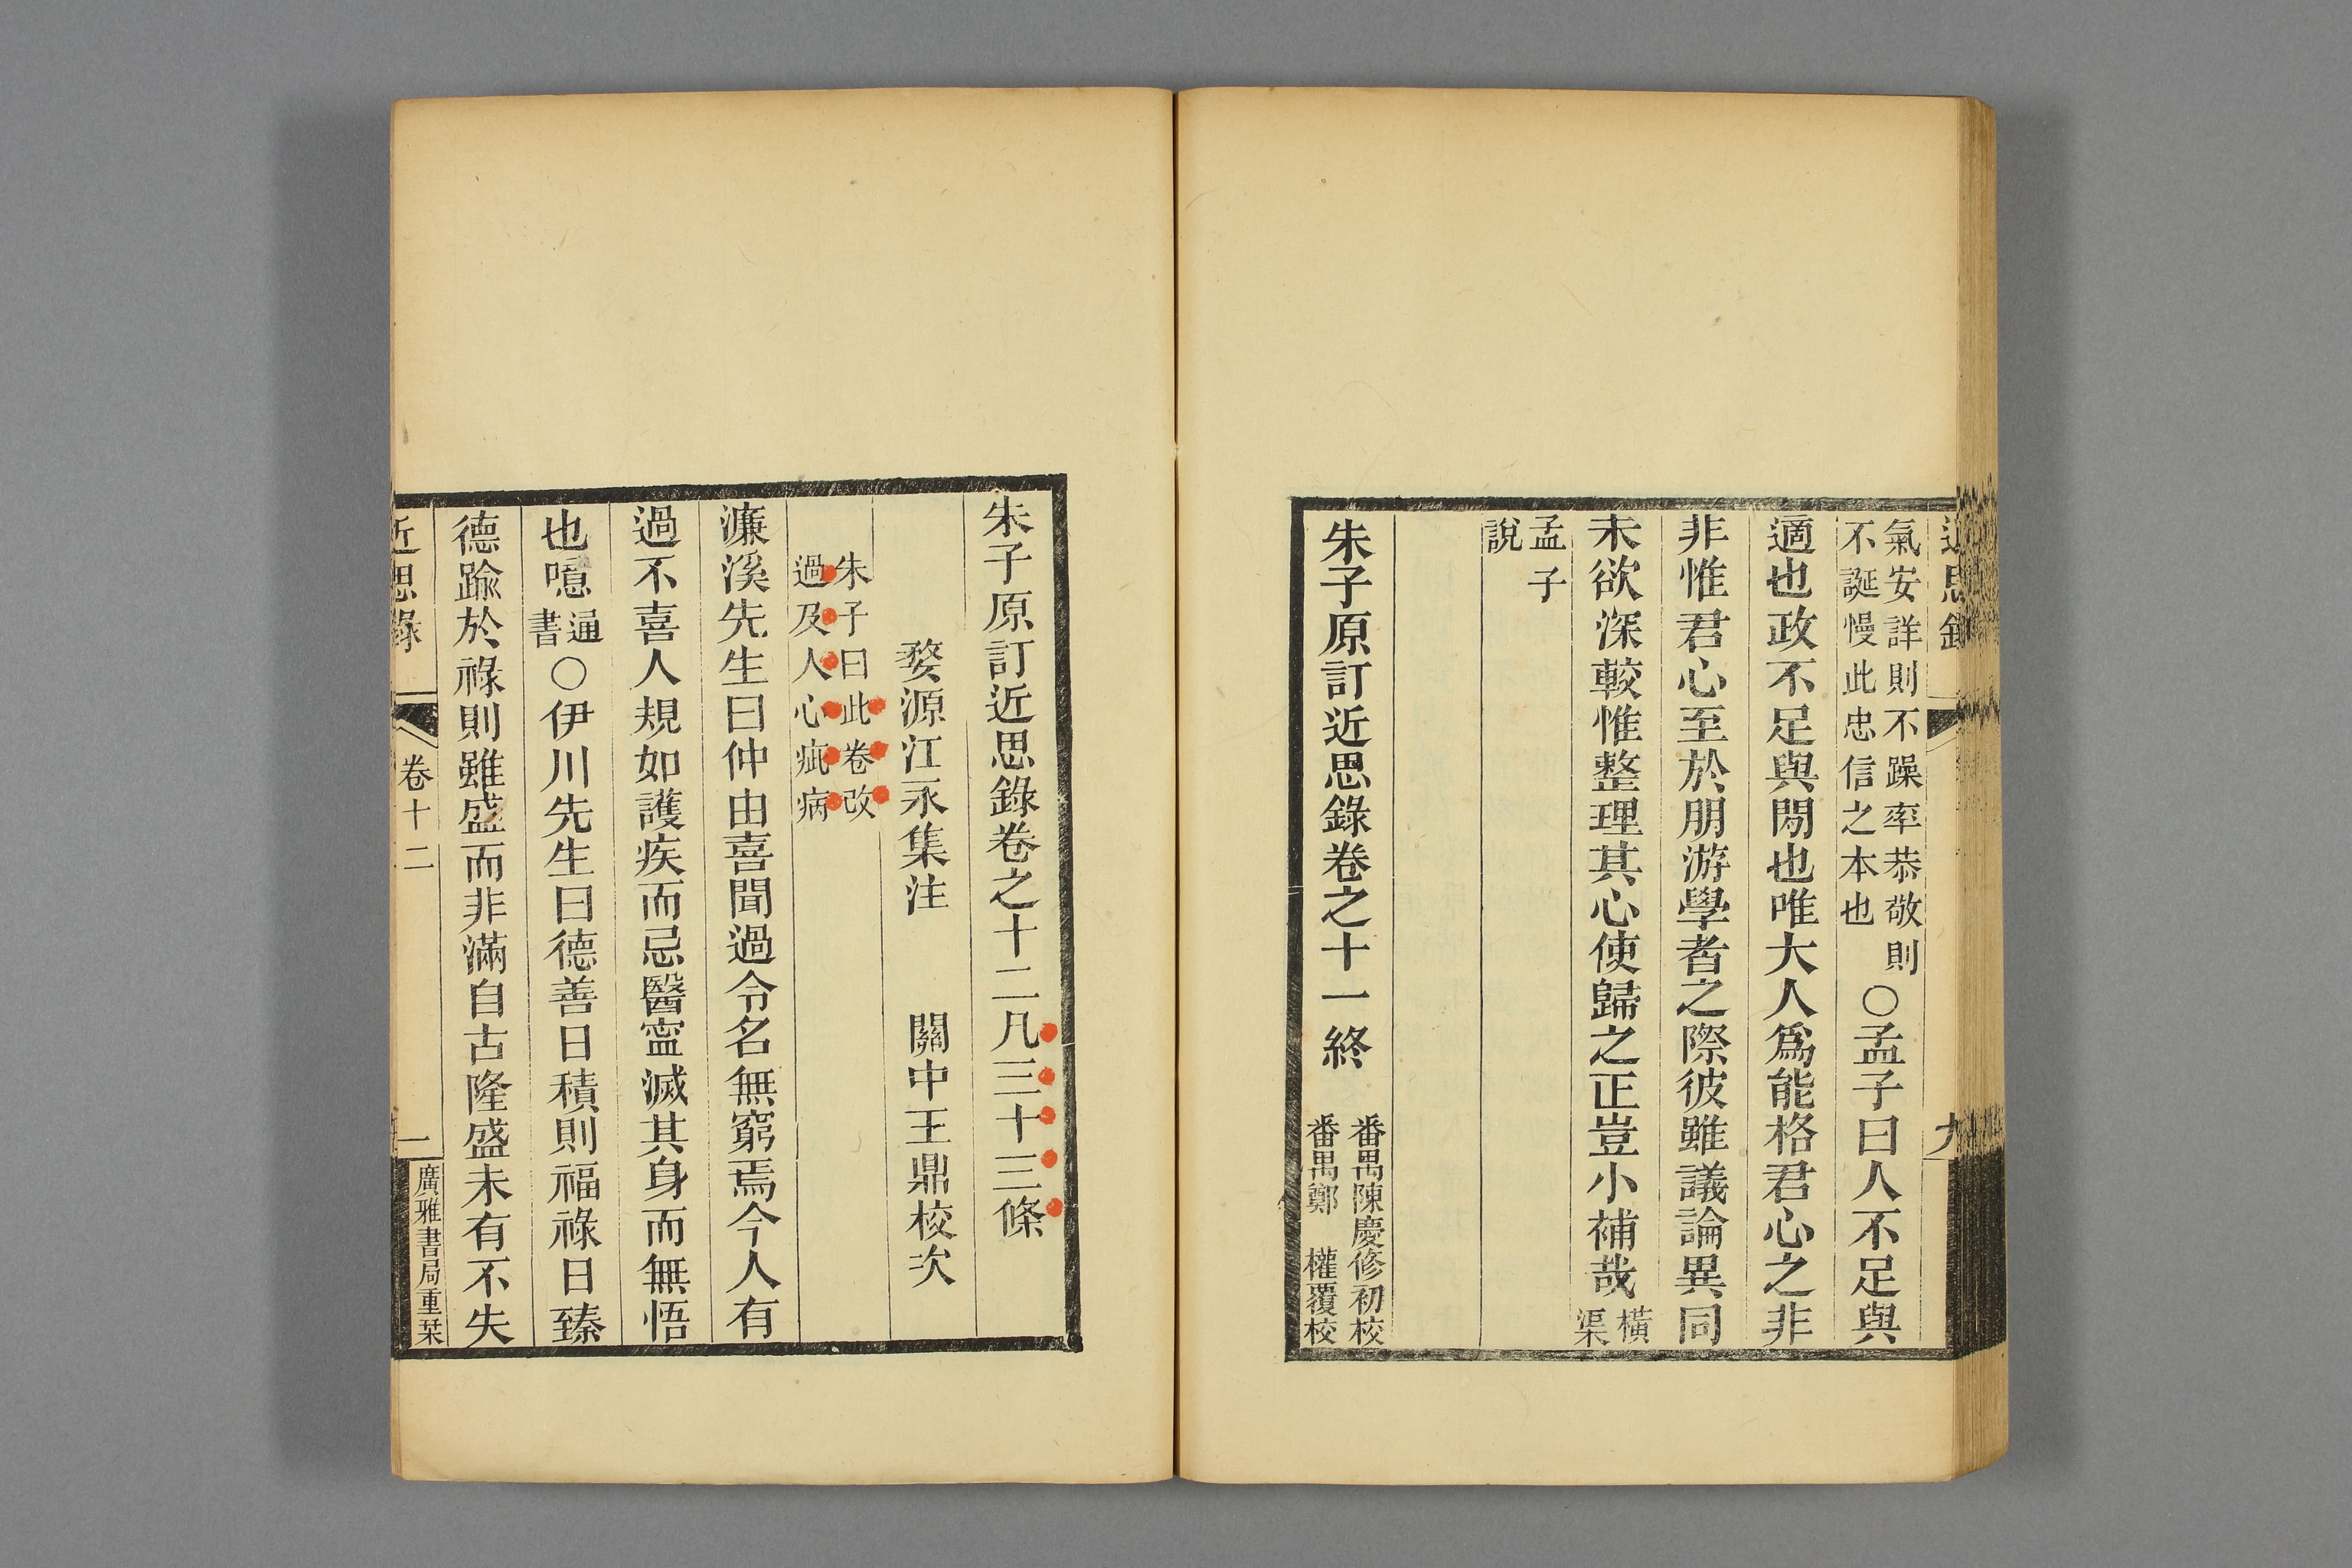 近思錄
九
氣安詳則不躁率恭敬則
不誕慢此忠信之本也
○孟子曰人不足與
適也政不足與閒也唯大人爲能格君心之非
非惟君心至於朋游學者之際彼雖議論異同
未欲深較惟整理其心使歸之正豈小補哉橫渠
孟子
說
朱子原訂近思錄卷之十一終
番禺陳慶修初校
番禺鄭 權覆校
朱子原訂近思錄卷之十二凡三十三條
婺源江永集注 關中王鼎校次
朱子曰此卷改
過及人心疵病
濂溪先生曰仲由喜聞過令名無窮焉今人有
過不喜人規如護疾而忌醫寍滅其身而無悟
也噫通書○伊川先生曰德善日積則福祿日臻
德踰於祿則雖盛而非滿自古隆盛未有不失
近思錄
卷十二
一
廣雅書局重栞